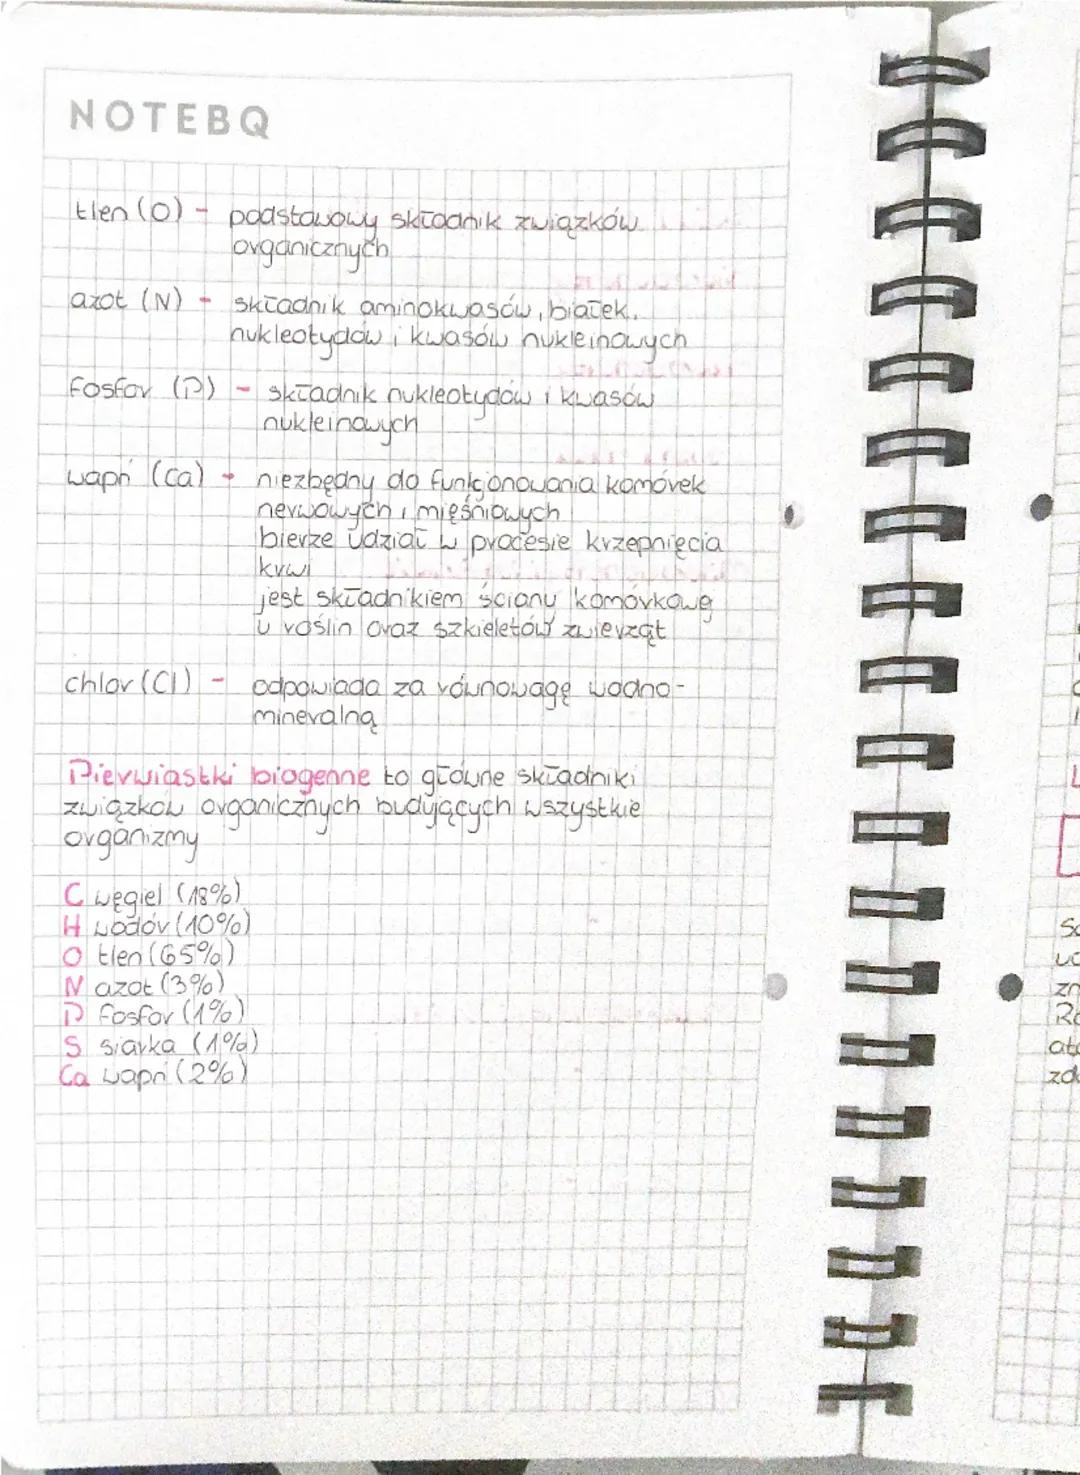 NOTEBQ
tlen (O) - podstawowy składnik związków
organicznych
azot (N) - składnik aminokwasów, białek,
nukleotydów i kwasów nukleinowych
fosfor (P) - składnik nukleotydów i kwasów
nukleinowych
wapń (Ca) - niezbędny do funkcjonowania komórek
nerwowych i mięśniowych
bierze udział w procesie krzepnięcia
krwi
jest składnikiem ściany komórkowe
u roślin oraz szkieletów zwierząt
chlor (Cl) - odpowiada za równowagę wodno-
mineralną
Pierwiastki biogenne to główne składniki
związków organicznych budujących wszystkie
organizmy
C węgiel (18%)
H wodór (10%)
O tlen (65%)
N azot (3%)
P fosfor (1%)
S siarka (1%)
Ca wapń (2%)